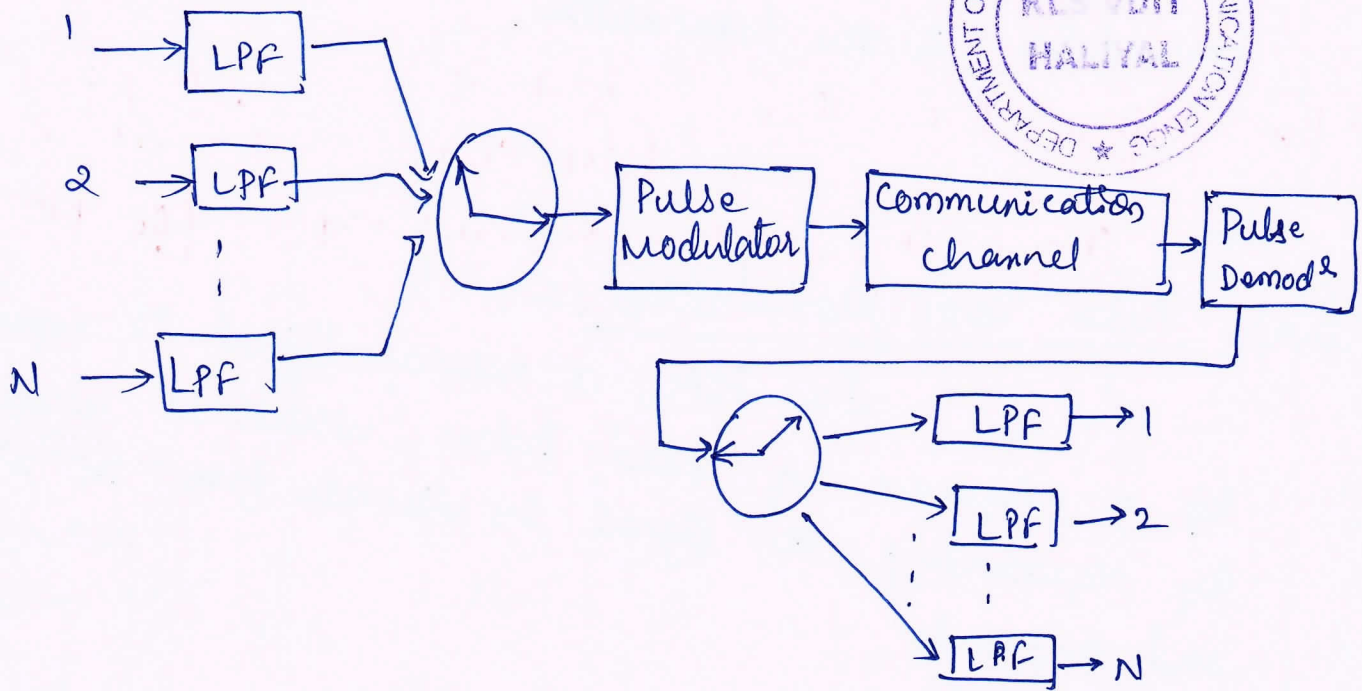 1
LPF
2
LPF
N
LPF
Pulse
Modulator
Communication
channel
Pulse
Demodr
LPF
1
LPF
2
LPF
N
KLS VDIT
HALIYAL
DEPARTMENT O
NICATION ENGG